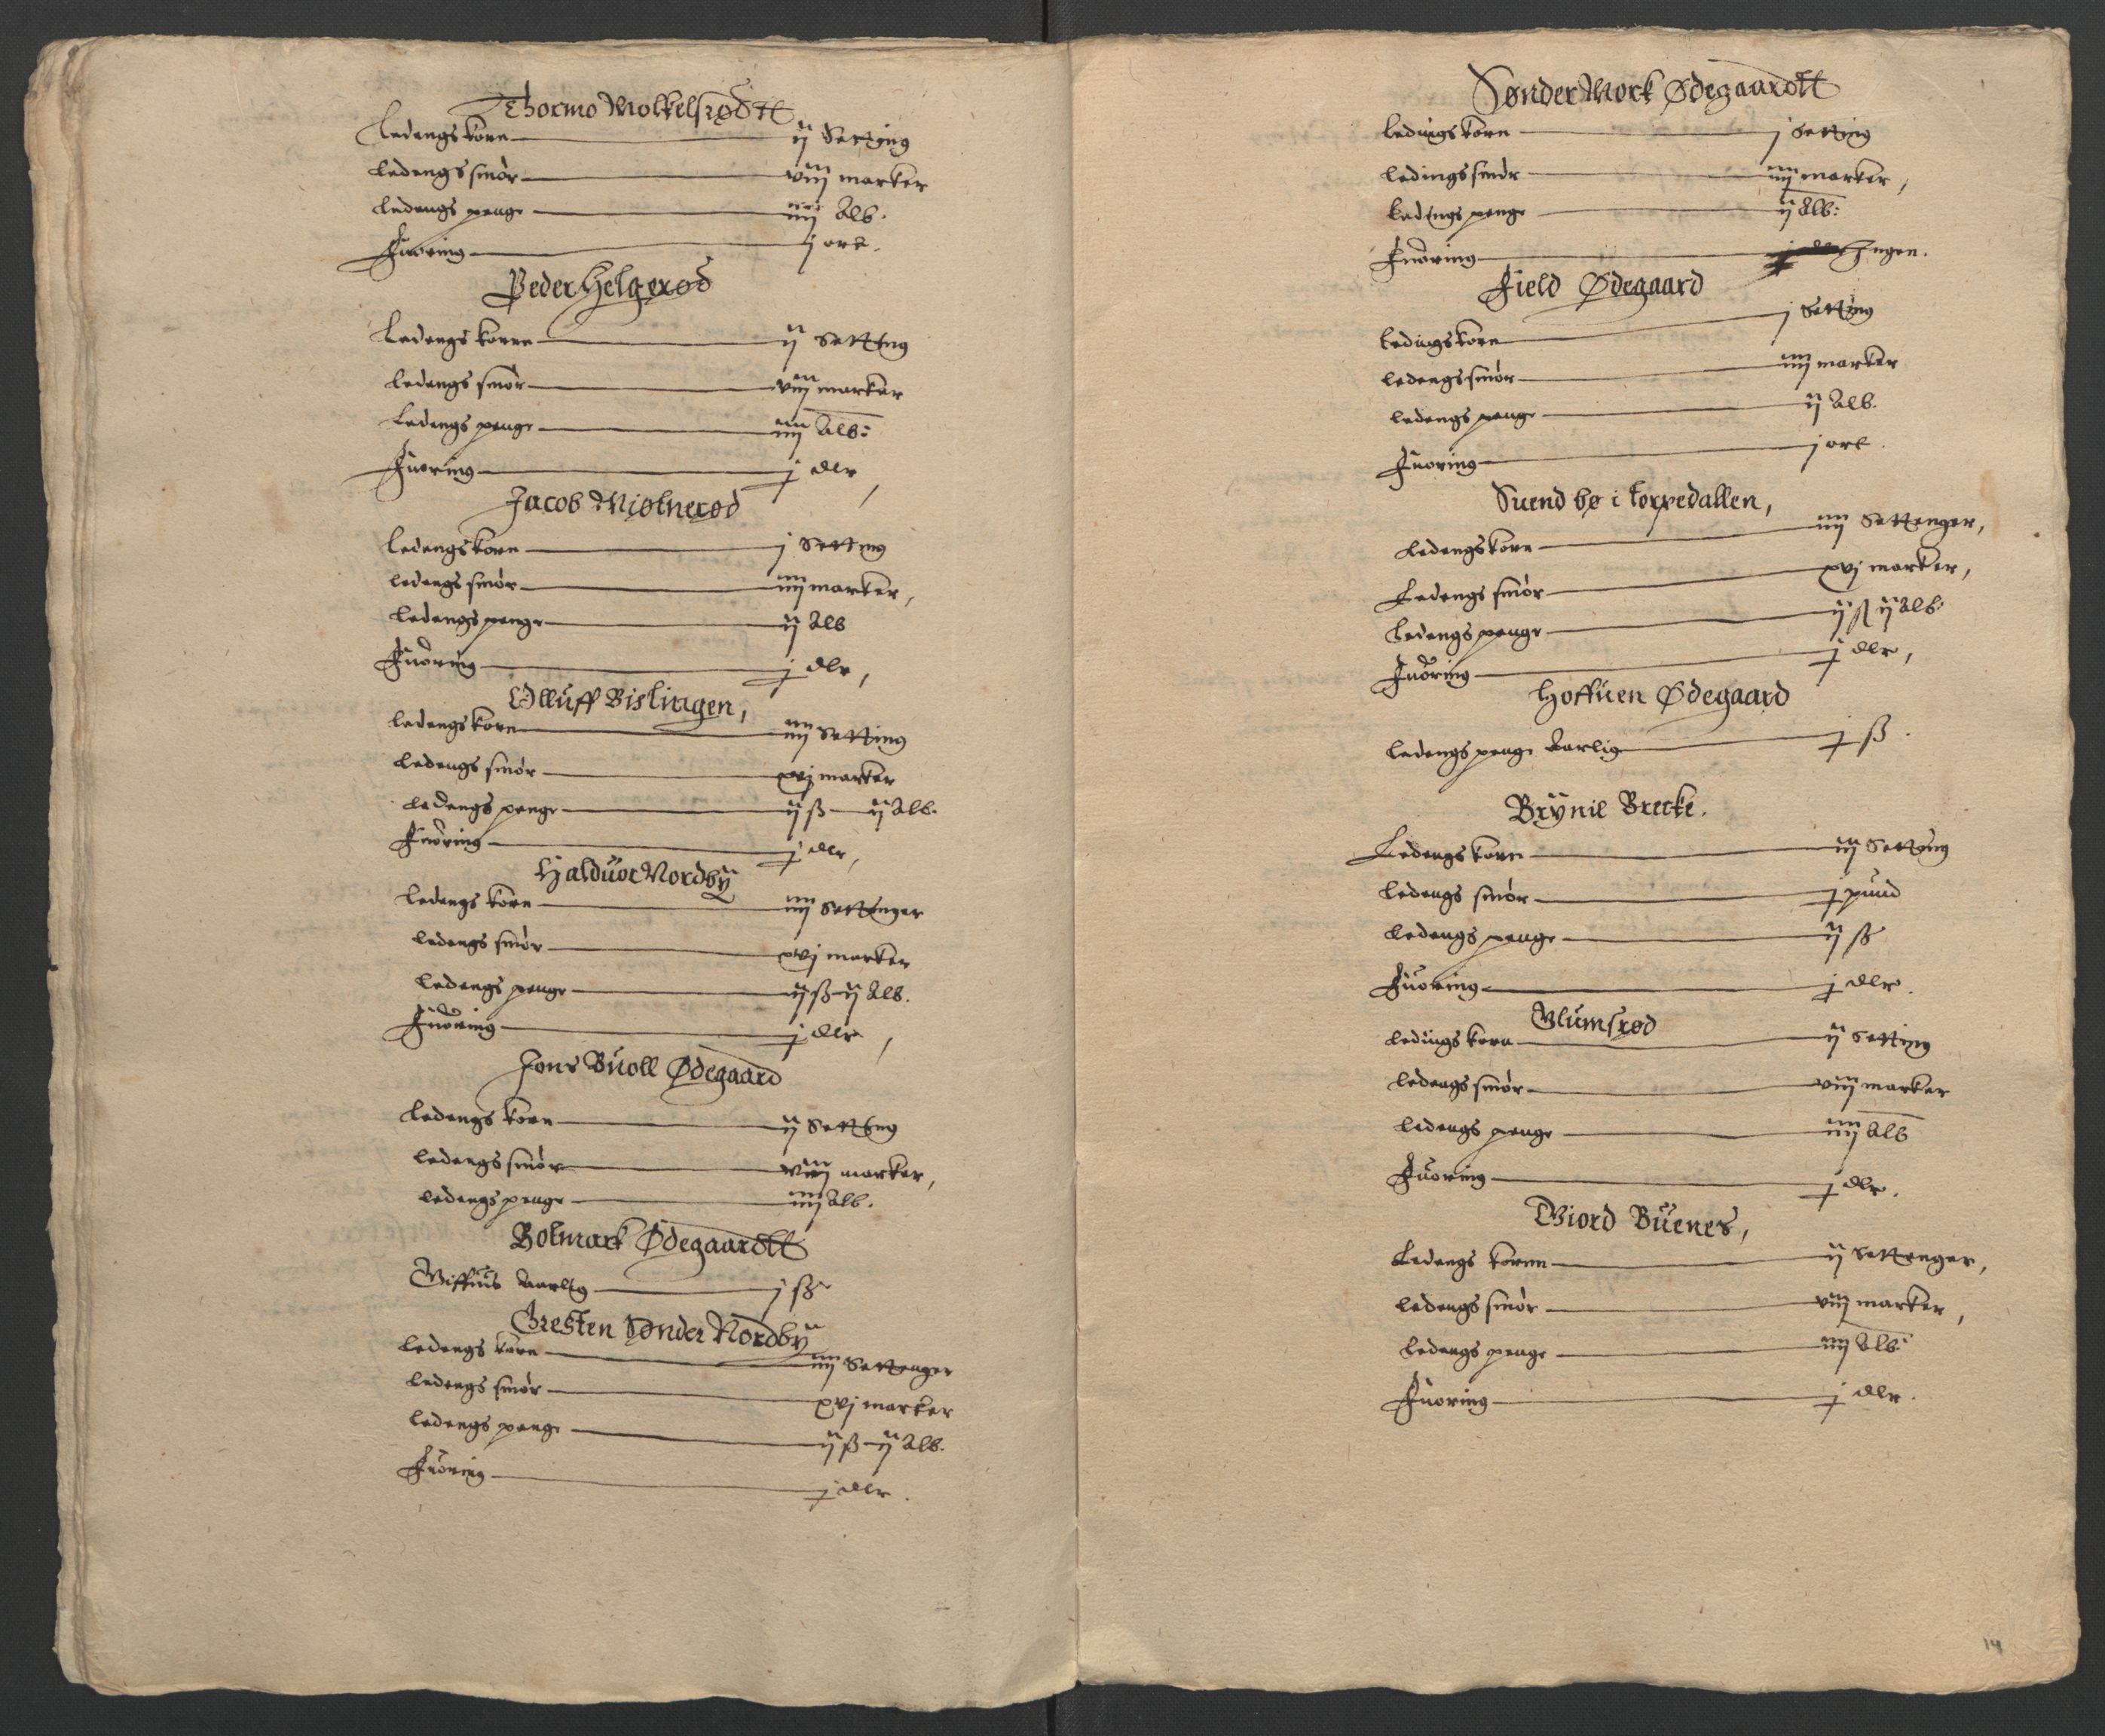 Thormo Molkelsrødtt
Ledengs korn ij Setting
Ledengs smør viij marker
Ledengs penge iiij Alb.
Fuoring j ort.
Peder Helgerød
Ledengs kornn ij Setting
Ledengs smør viij marker
Ledengs penge iiij Alb:
Fuoring j dlr
Jacob Miølnerød
Ledengs korn j Setting
Ledengs smør iiij marker,
Ledengs penge ij Alb
Fuoring j dlr,
Olluff Bislingen,
Ledengs korn iiij Setting
Ledengs smør xvj marker
Ledengs penge ij ß ij Alb.
Fuoring j dlr,
Halduor Nordbÿ
Ledengs korn iiij Settinger
Ledengs smør xvj marker
Ledengs penge ij ß ij Alb.
Fuoring j dlr,
Jons Buoll Ødegaard
Ledengs korn ij Setting
Ledengs smør viij marker,
Ledengs penge iiij Alb.
Bolmark Ødegaardtt
Giffuis Aarlig j ß
Gresten Sønder Nordbÿ
Ledengs korn iiij Settenger
Ledengs smør xvj marker
Ledengs penge ij ß ij Alb.
Fuoring j dlr.
Sønder Mork Ødegaardtt
Ledings korn j Setting
Ledings smør iiij marker,
Ledings penge ij Alb:
Fuoring Ingen.
Field Ødegaard
Ledings korn j Setting
Ledengs smør iiij marker
Ledengs penge ij Alb.
Fuoring j ort.
Suend bø i torpedallen,
Ledengs korn iiij Settenger,
Ledengs smør xvj marker,
Ledengs penge ij ß ij Alb:
Fuoring j dlr,
Hoffuen Ødegaard
Ledengs penge Aarlig j ß.
Brÿnil Brecke.
Ledengs korn iij Setting
Ledengs smør j pund
Ledengs penge ij ß
Fuoring j dlr.
Glumsrød
Ledings korn ij Setting
Ledengs smør viij marker
Ledengs penge iiij Alb
Fuoring j dlr.
Giord Buenes,
Ledengs kornn ij Settenger,
Ledengs smør viij marker,
Ledengs penge iiij Alb:
Fuoring j dlr.
14